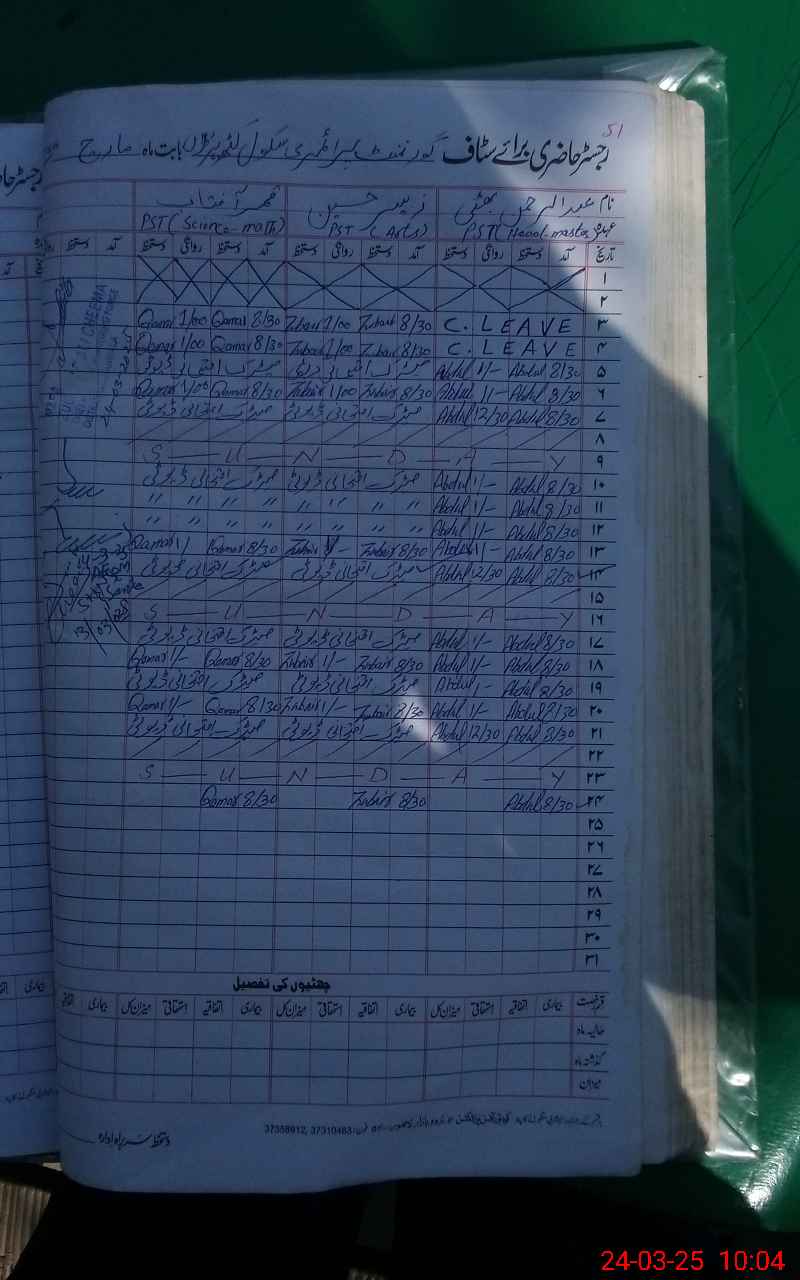 51
رجسٹر حاضری برائے سٹاف گورنمنٹ پرائمری سکول بابت ماہ مارچ
نام عبدالرحمن بھٹی زبیر حسین قمر آفتاب
عہدہ PST (Head-master) PST (Arts) PST (Science-math)
تاریخ آمد دستخط روانگی دستخط آمد دستخط روانگی دستخط آمد دستخط روانگی دستخط
۱
۲
۳ C. LEAVE Zubair 8/30 Zubair 1/00 Qamar 8/30 Qamar 1/00
۴ C. LEAVE Zubair 8/30 Zubair 1/00 Qamar 8/30 Qamar 1/00
۵ Abdul 8/30 Abdul 1/- میٹرک امتحانی ڈیوٹی میٹرک امتحانی ڈیوٹی
۶ Abdul 8/30 Abdul 1/- Zubair 8/30 Zubair 1/00 Qamar 8/30 Qamar 1/00
۷ Abdul 8/30 Abdul 12/30 میٹرک امتحانی ڈیوٹی میٹرک امتحانی ڈیوٹی
۸
۹ S U N D A Y
۱۰ Abdul 8/30 Abdul 1/- میٹرک امتحانی ڈیوٹی میٹرک امتحانی ڈیوٹی
۱۱ Abdul 8/30 Abdul 1/- " " " " " " " "
۱۲ Abdul 8/30 Abdul 1/- " " " " " " " "
۱۳ Abdul 8/30 Abdul 1/- Zubair 8/30 Zubair 1/- Qamar 8/30 Qamar 1/-
۱۴ Abdul 8/30 Abdul 12/30 میٹرک امتحانی ڈیوٹی میٹرک امتحانی ڈیوٹی
۱۵
۱۶ S U N D A Y
۱۷ Abdul 8/30 Abdul 1/- میٹرک امتحانی ڈیوٹی میٹرک امتحانی ڈیوٹی
۱۸ Abdul 8/30 Abdul 1/- Zubair 8/30 Zubair 1/- Qamar 8/30 Qamar 1/-
۱۹ Abdul 8/30 Abdul 1- میٹرک امتحانی ڈیوٹی میٹرک امتحانی ڈیوٹی
۲۰ Abdul 8/30 Abdul 1/- Zubair 8/30 Zubair 1/- Qamar 8/30 Qamar 1/-
۲۱ Abdul 8/30 Abdul 12/30 میٹرک امتحانی ڈیوٹی میٹرک امتحانی ڈیوٹی
۲۲
۲۳ S U N D A Y
۲۴ Abdul 8/30 Zubair 8/30 Qamar 8/30
۲۵
۲۶
۲۷
۲۸
۲۹
۳۰
۳۱
چھٹیوں کی تفصیل
قسم رخصت بیماری اتفاقیہ استحقاقی میزان کل بیماری اتفاقیہ استحقاقی میزان کل بیماری اتفاقیہ استحقاقی میزان کل بیماری اتفاقیہ
حالیہ ماہ
گذشتہ ماہ
میزان
37358912, 37310463
دستخط سربراہ ادارہ
24-03-25 10:04